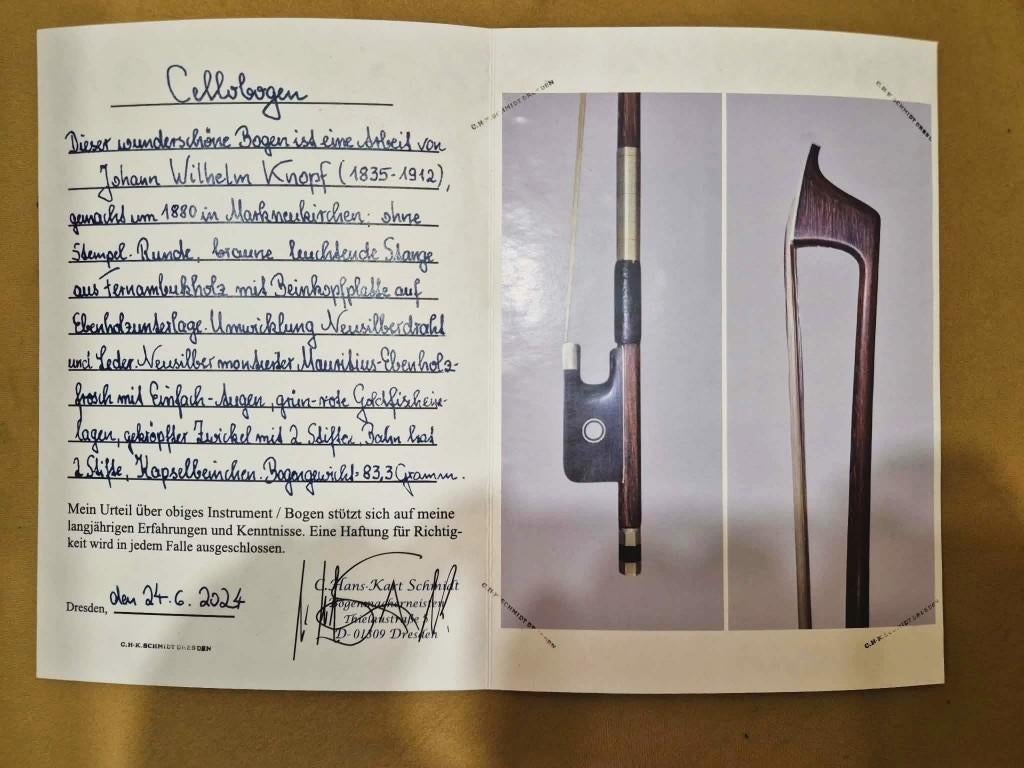 Cellobogen
Dieser wunderschöne Bogen ist eine Arbeit von
Johann Wilhelm Knopf (1835-1912),
gemacht um 1880 in Markneukirchen; ohne
Stempel. Runde, braune leuchtende Stange
aus Fernambukholz mit Beinkopfplatte auf
Ebenholzunterlage. Umwicklung Neusilberdraht
und Leder. Neusilber montierter, Mauritius-Ebenholz-
frosch mit Einfach-Augen, grün-rote Goldfischein-
lagen, geköpfter Zwickel mit 2 Stiften. Bahn hat
2 Stifte, Kapselbeinchen. Bogengewicht= 83,3 Gramm.
Mein Urteil über obiges Instrument / Bogen stützt sich auf meine
langjährigen Erfahrungen und Kenntnisse. Eine Haftung für Richtig-
keit wird in jedem Falle ausgeschlossen.
Dresden, den 24.6. 2024
C.Hans-Karl Schmidt
Bogenmachermeister
Thielaustraße 5
D- 01309 Dresden
C.H-K.SCHMIDT DRESDEN
C.H-K.SCHMIDT DRESDEN
C.H-K.SCHMIDT DRESDEN
C.H-K.SCHMIDT DRESDEN
C.H-K.SCHMIDT DRESDEN